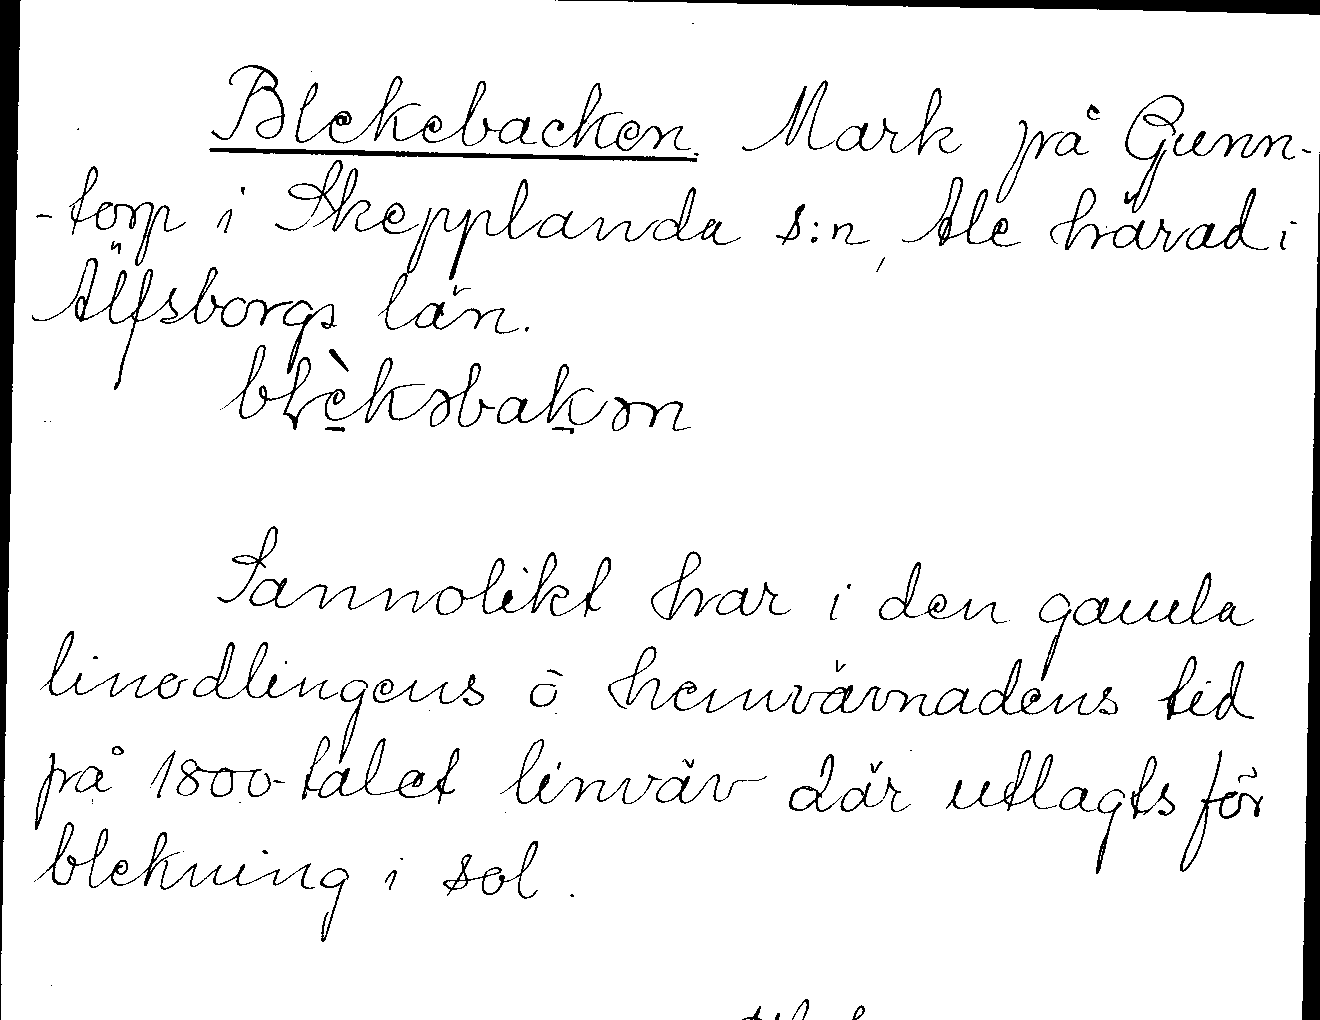 Blekebacken. Mark på Gunn-
-torp i Skepplanda s:n, Ale härad i
Älfsborgs län.
blèkəbakən
Sannolikt har i den gamla
linodlingens o hemvävnadens tid
på 1800-talet linväv där utlagts för
blekning i sol.